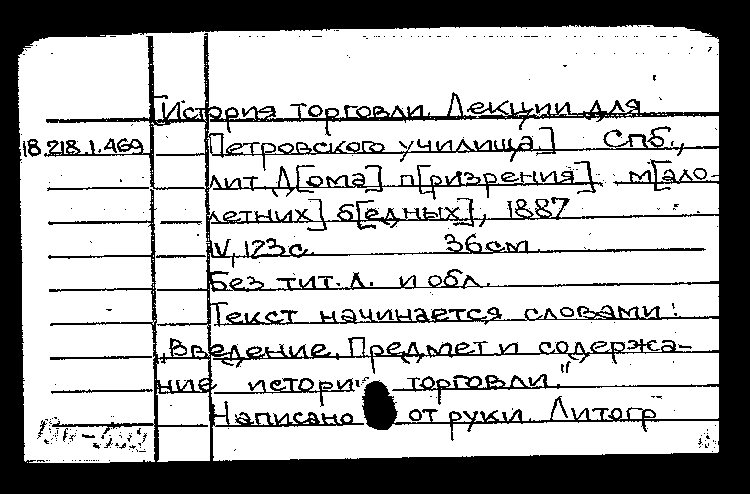 [История торговли. Лекции для
18.218.1.469 Петровского училища.] Спб.,
лит. Д[ома] п[ризрения] м[ало-
летних] б[едных], 1887
IV, 123 с. 36 см.
Без тит. л. и обл.
Текст начинается словами:
„Введение. Предмет и содержа-
ние истории торговли."
Написано от руки. Литогр